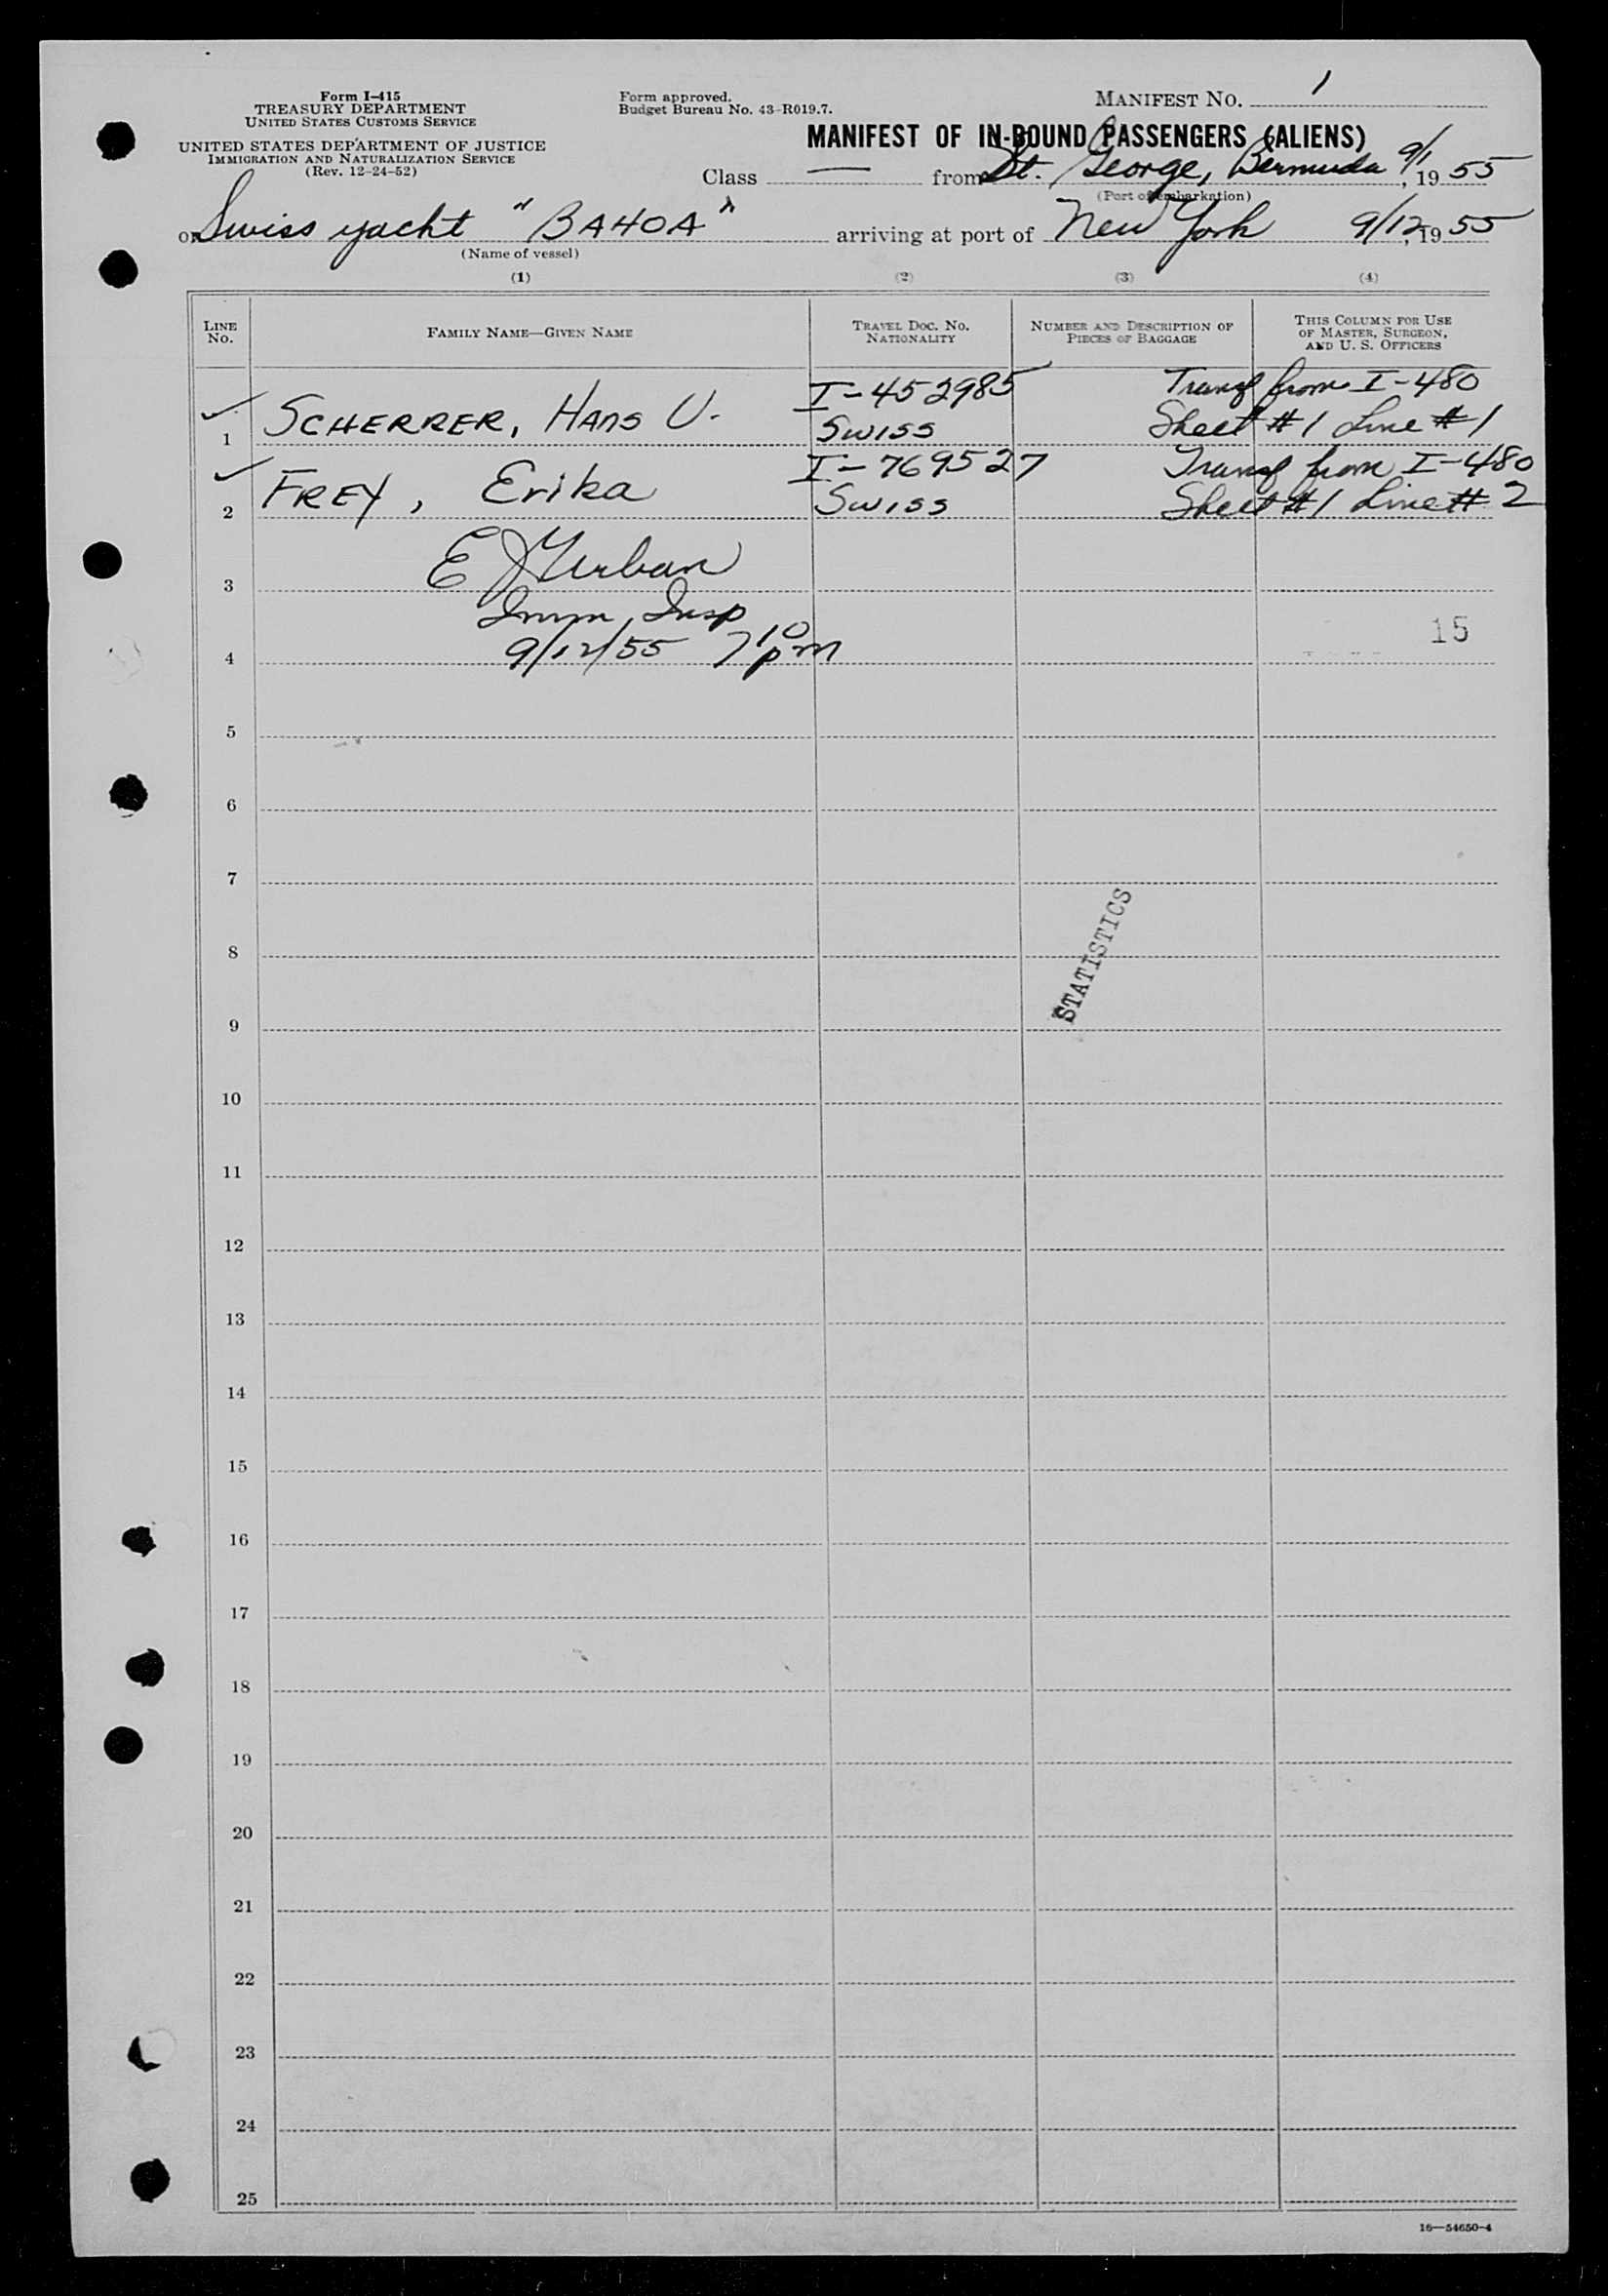 Form I-415
TREASURY DEPARTMENT
UNITED STATES CUSTOMS SERVICE
UNITED STATES DEPARTMENT OF JUSTICE
IMMIGRATION AND NATURALIZATION SERVICE
(Rev. 12-24-52)
Form approved.
Budget Bureau No. 43-R019.7.
MANIFEST NO. 1
MANIFEST OF IN-BOUND PASSENGERS (ALIENS)
Class — from St. George, Bermuda 9/1, 19 55
(Port of embarkation)
on Swiss yacht "BA40A" arriving at port of New York 9/12, 19 55
(Name of vessel)
(1) (2) (3) (4)
LINE NO. FAMILY NAME—GIVEN NAME TRAVEL DOC. NO. NATIONALITY NUMBER AND DESCRIPTION OF PIECES OF BAGGAGE THIS COLUMN FOR USE OF MASTER, SURGEON, AND U. S. OFFICERS
I-452985 Transf from I-480
✓ 1 SCHERRER, HANS U. SWISS Sheet #1 Line #1
I-769527 Transf from I-480
✓ 2 FREY, Erika SWISS Sheet #1 Line #2
3 E J Urban
Imm. Insp
4 9/12/55 7 10 pm 15
5
6
7
8
STATISTICS
9
10
11
12
13
14
15
16
17
18
19
20
21
22
23
24
25
16—54650-4